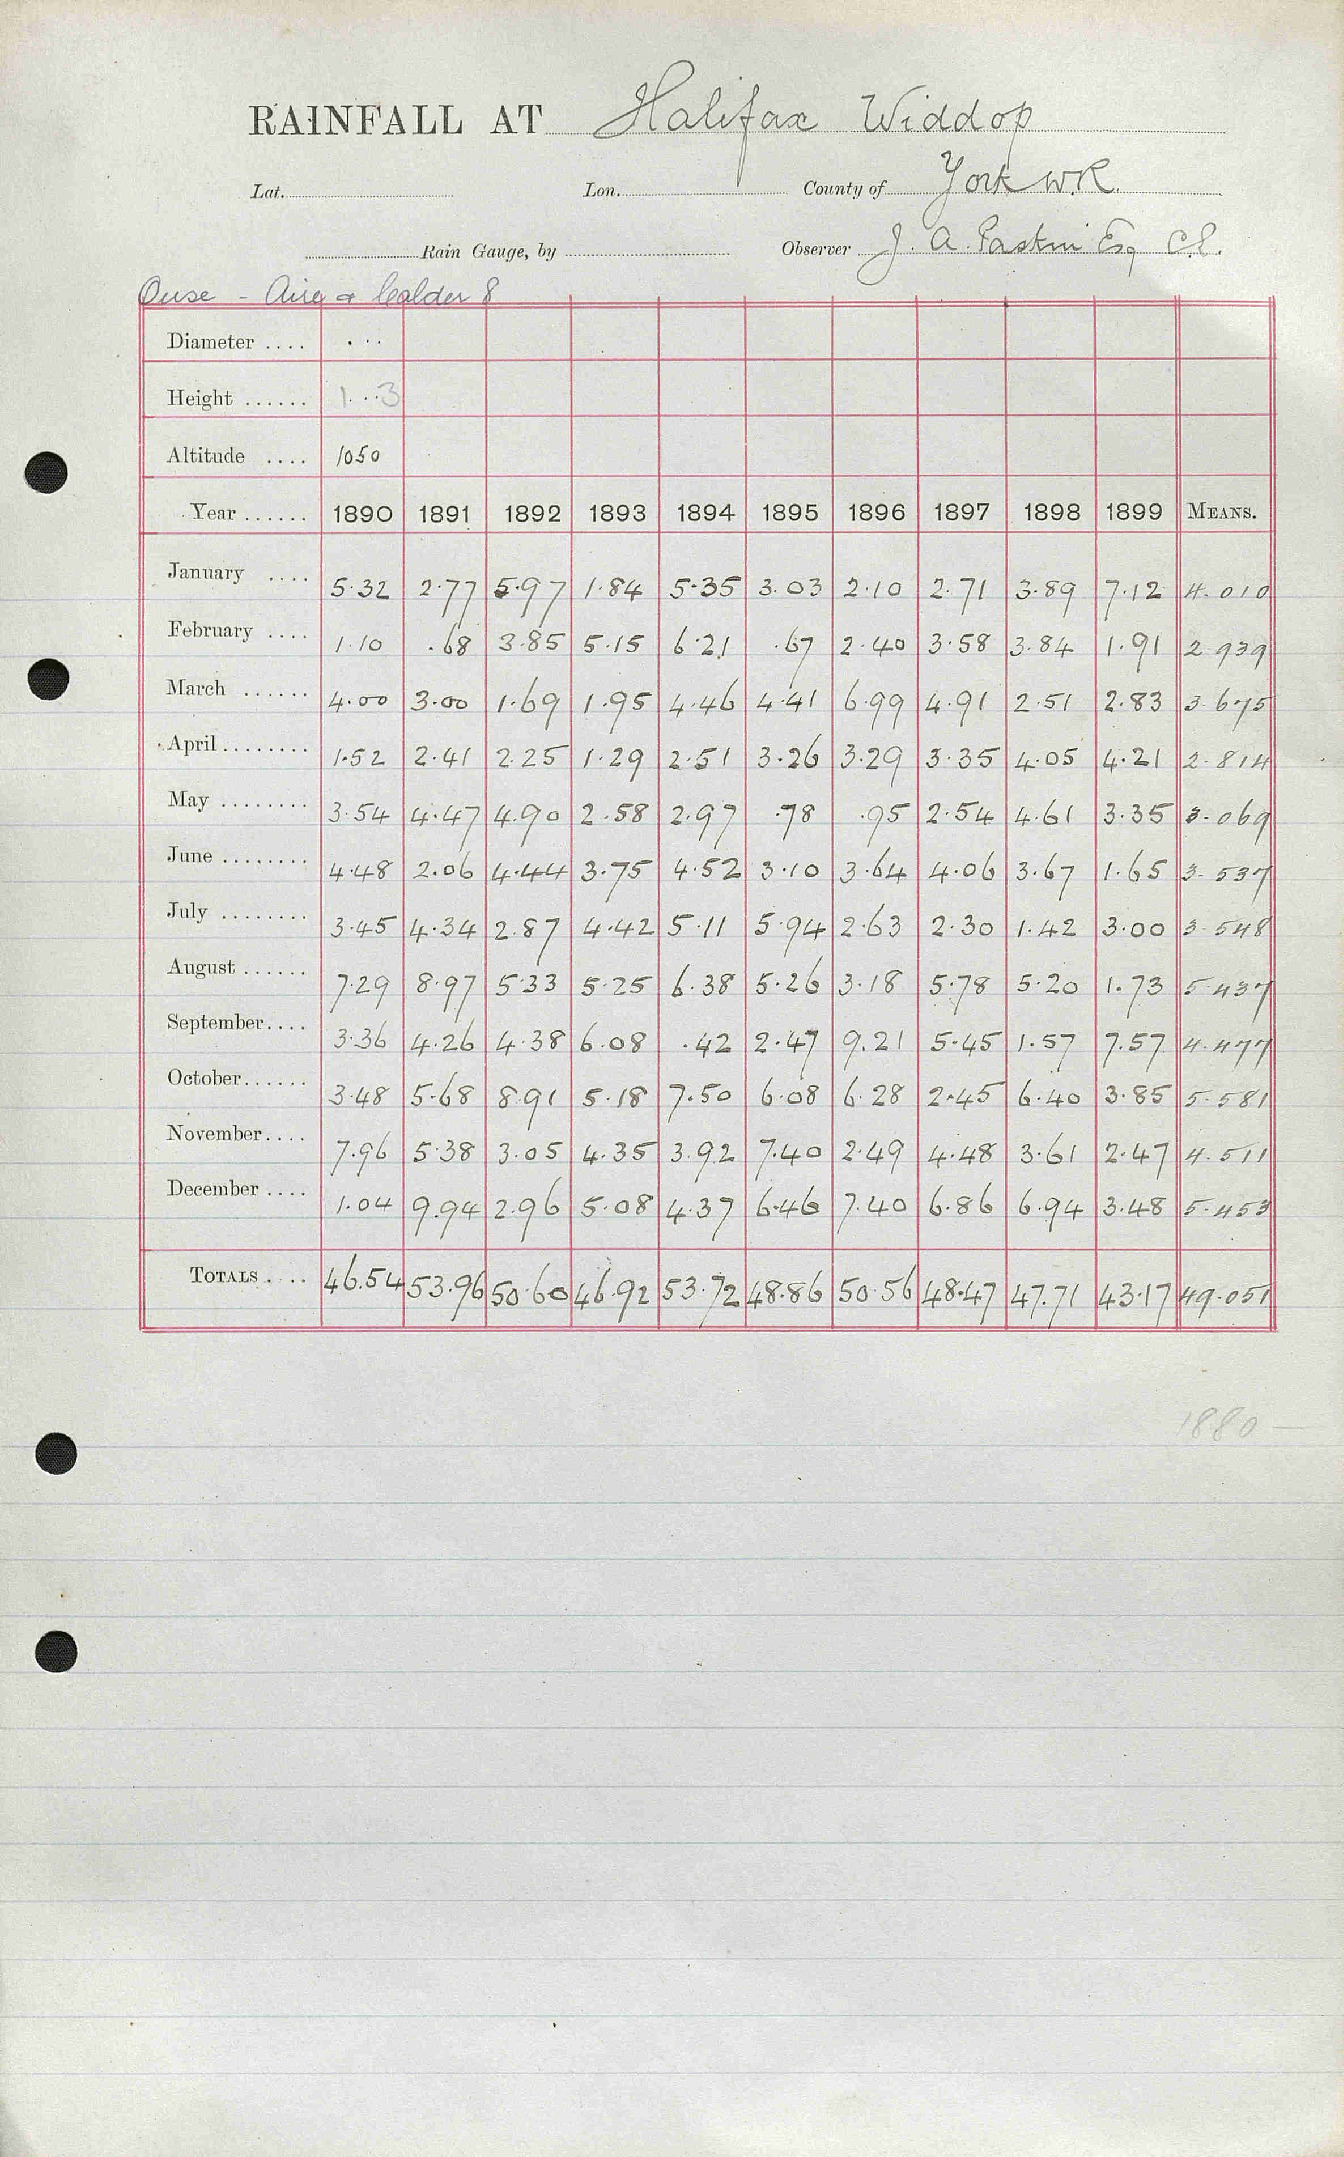 RAINFALL AT Halifax Widdop
Lat. Lon. County of York W.R.
Rain Gauge, by Observer J. A. Esq C.E.
Ouse - Aire & Calder 8
Diameter .... . . .
Height ...... 1...3
Altitude .... 1050
Year ...... 1890 1891 1892 1893 1894 1895 1896 1897 1898 1899 MEANS.
January .... 5.32 2.77 5.97 1.84 5.35 3.03 2.10 2.71 3.89 7.12 4.010
February .... 1.10 .68 3.85 5.15 6.21 .67 2.40 3.58 3.84 1.91 2.939
March ...... 4.00 3.00 1.69 1.95 4.46 4.41 6.99 4.91 2.51 2.83 3.675
April ........ 1.52 2.41 2.25 1.29 2.51 3.26 3.29 3.35 4.05 4.21 2.814
May ........ 3.54 4.47 4.90 2.58 2.97 .78 .95 2.54 4.61 3.35 3.069
June ........ 4.48 2.06 4.44 3.75 4.52 3.10 3.64 4.06 3.67 1.65 3.537
July ........ 3.45 4.34 2.87 4.42 5.11 5.94 2.63 2.30 1.42 3.00 3.548
August ...... 7.29 8.97 5.33 5.25 6.38 5.26 3.18 5.78 5.20 1.73 5.437
September.... 3.36 4.26 4.38 6.08 .42 2.47 9.21 5.45 1.57 7.57 4.477
October...... 3.48 5.68 8.91 5.18 7.50 6.08 6.28 2.45 6.40 3.85 5.581
November.... 7.96 5.38 3.05 4.35 3.92 7.40 2.49 4.48 3.61 2.47 4.511
December .... 1.04 9.94 2.96 5.08 4.37 6.46 7.40 6.86 6.94 3.48 5.453
TOTALS .... 46.54 53.96 50.60 46.92 53.72 48.86 50.56 48.47 47.71 43.17 49.051
1880 —